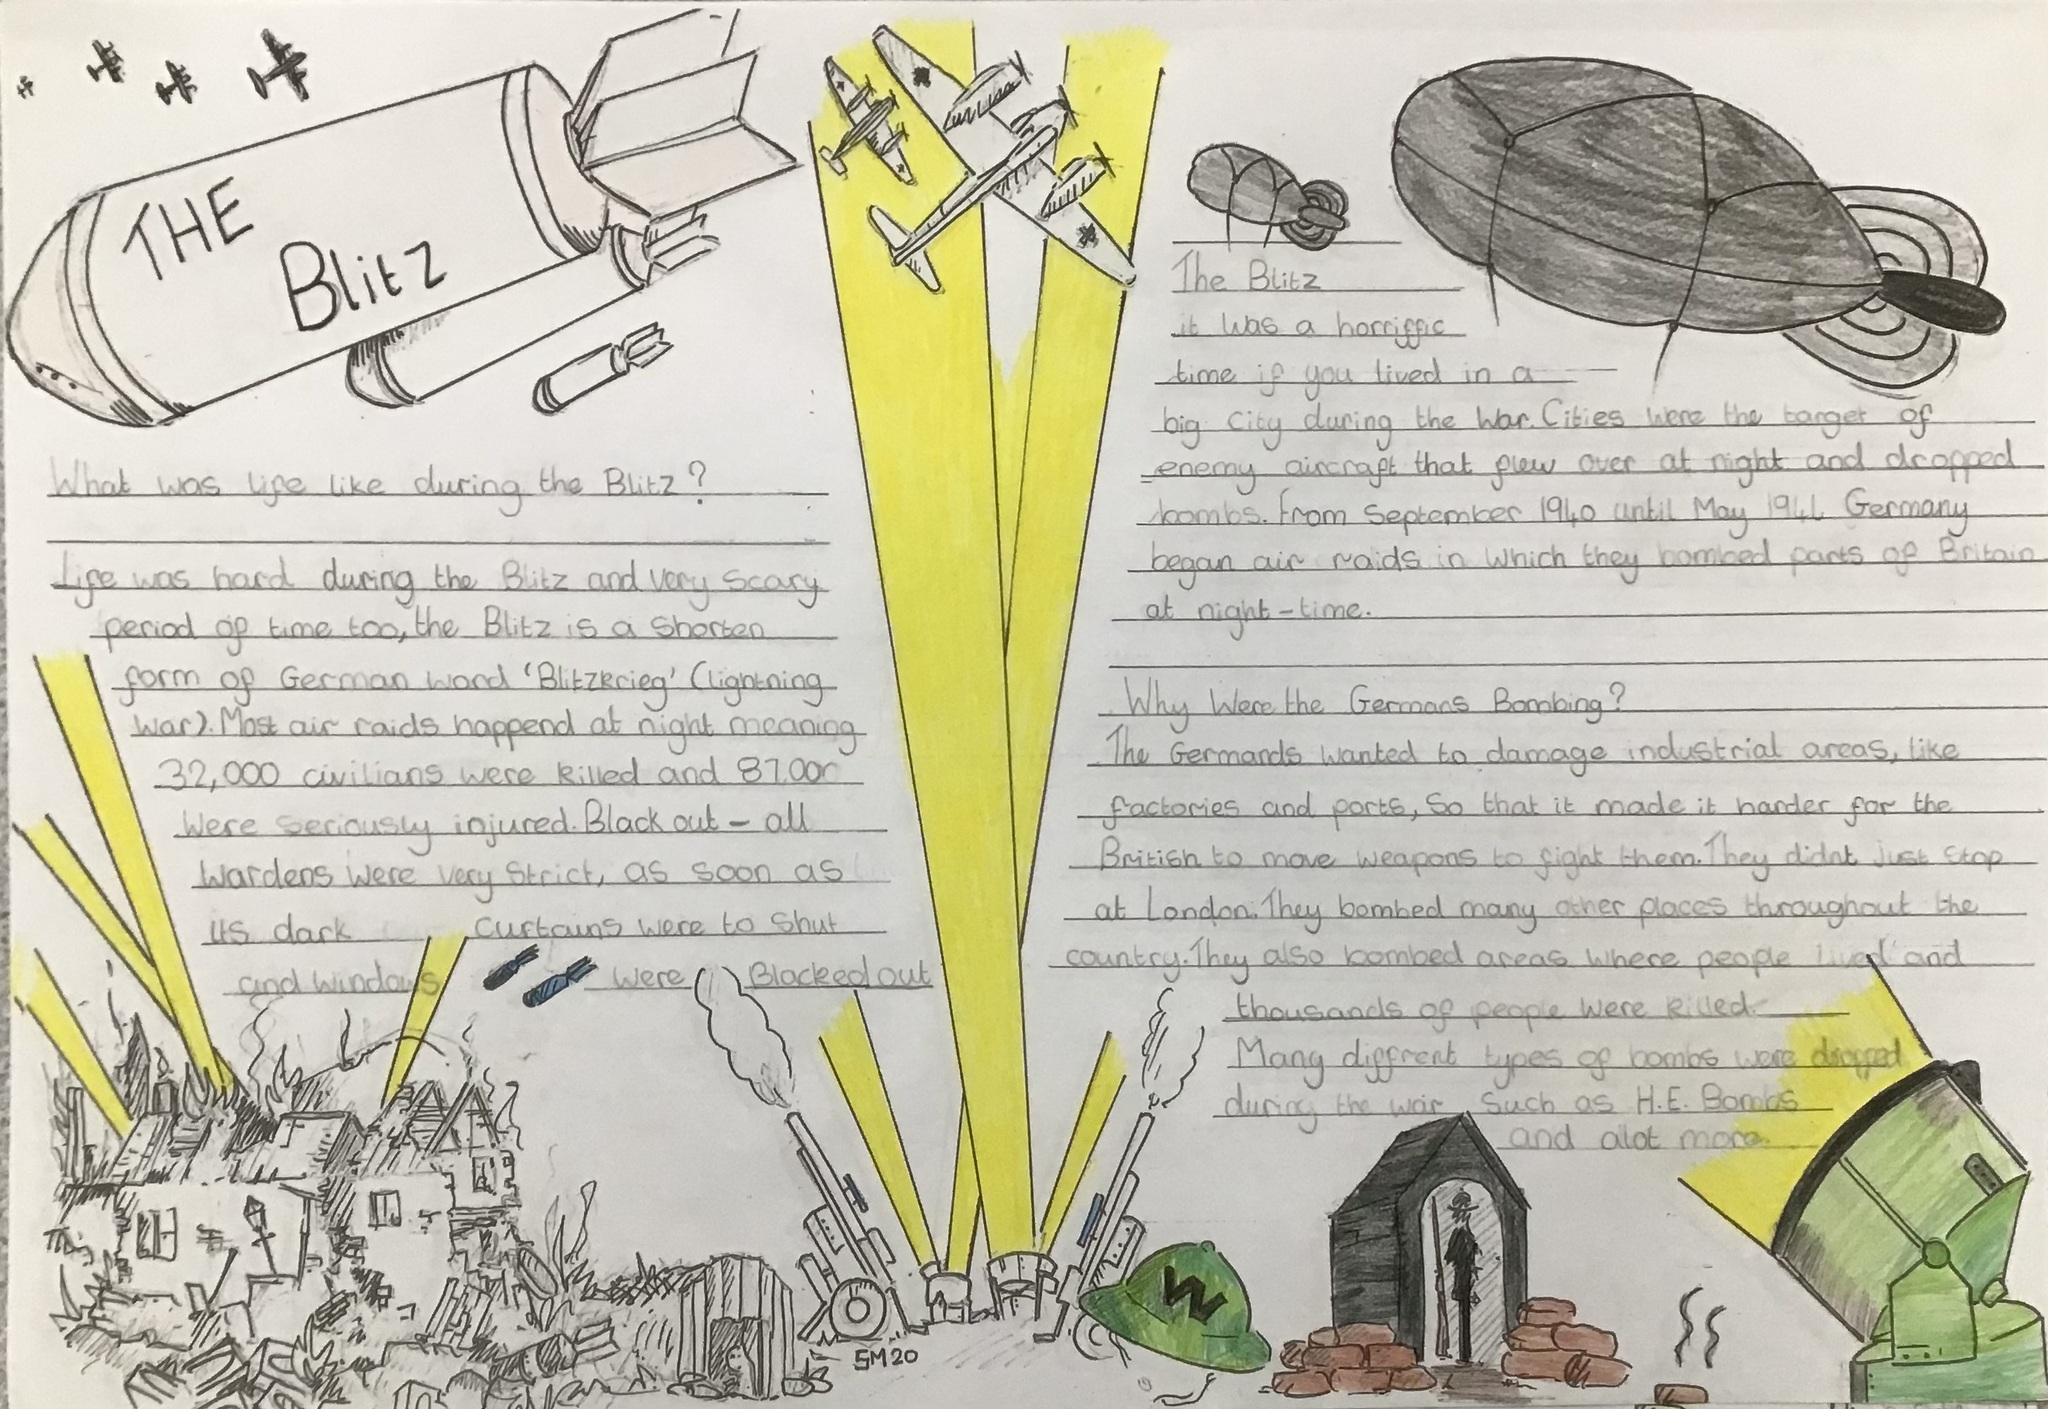 THE
Blitz
What was life like during the Blitz?
Life was hard during the Blitz and very scary
period of time too, the Blitz is a shorten
form of German word 'Blitzkrieg' (lightning
war). Most air raids happend at night meaning
32,000 civilians were killed and 87.000
were seriously injured. Black out - all
wardens were very strict, as soon as
its dark curtains were to shut
and windows were Blacked out
The Blitz
it was a horriffic
time if you lived in a
big city during the war. Cities were the target of
enemy aircraft that flew over at night and dropped
bombs. From September 1940 until May 1941 Germany
began air raids in which they bombed parts of Britain
at night-time.
Why were the Germans Bombing?
The Germands wanted to damage industrial areas, like
factories and ports, so that it made it harder for the
British to move weapons to fight them. They didnt just stop
at London. They bombed many other places throughout the
country. They also bombed areas where people lived and
thousands of people were killed.
Many diffrent types of bombs were dropped
during the war such as H.E. Bombs
and alot more.
W
SM20